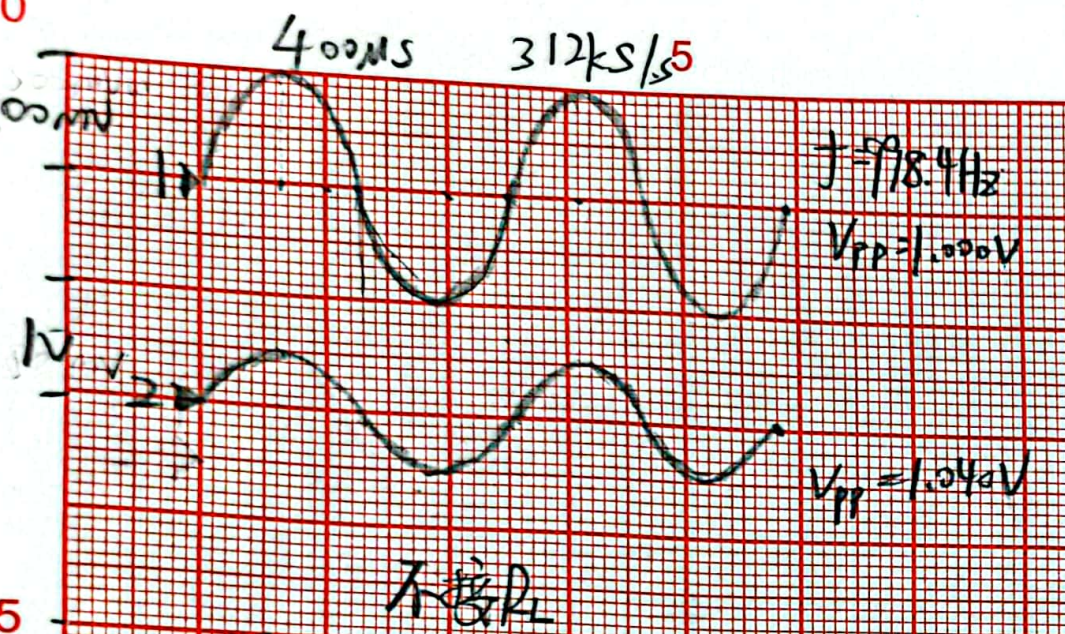 0
400μs 312kS/s 5
00mV
1
f=998.4Hz
Vpp=1.000V
1V
2
Vpp=1.040V
不接RL
5